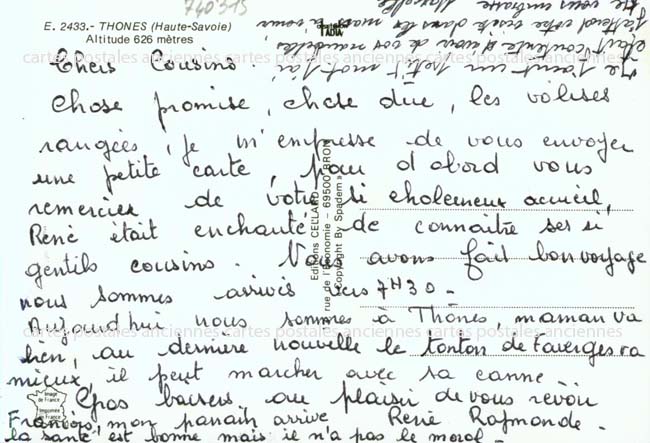 740315
E. 2433.- THONES (Haute-Savoie)
Altitude 626 mètres
Chers Cousins
Chose promise, chose due, les valises
rangées, je m'empresse de vous envoyer
une petite carte, pour d'abord vous
remercier de votre si chaleureux accueil,
René était enchanté de connaitre ses si
gentils cousins. Nous avons fait bon voyage
nous sommes arrivés vers 7H30 -
Aujourd'hui nous sommes à Thônes, maman va
bien, au dernière nouvelle le tonton de Faverges va
mieux, il peut marcher avec sa canne
Gros baisers au plaisir de vous revoir
François, mon parrain arrive René Raymonde -
la santé est bonne mais il n'a pas le moral -
Je joint un petit mot j'ai
était contente d'avoir de vos nouvelles,
j'attend votre visite dans le
Je vous embrasse Marcelle
Editions CELLARD
rue de l'Economie - 69500 BRON
Copyright By Spadem
Image de France
Imprimée en France
cartes postales anciennes cartes postales anciennes cartes postales anciennes
cartes postales anciennes cartes postales anciennes cartes postales anciennes